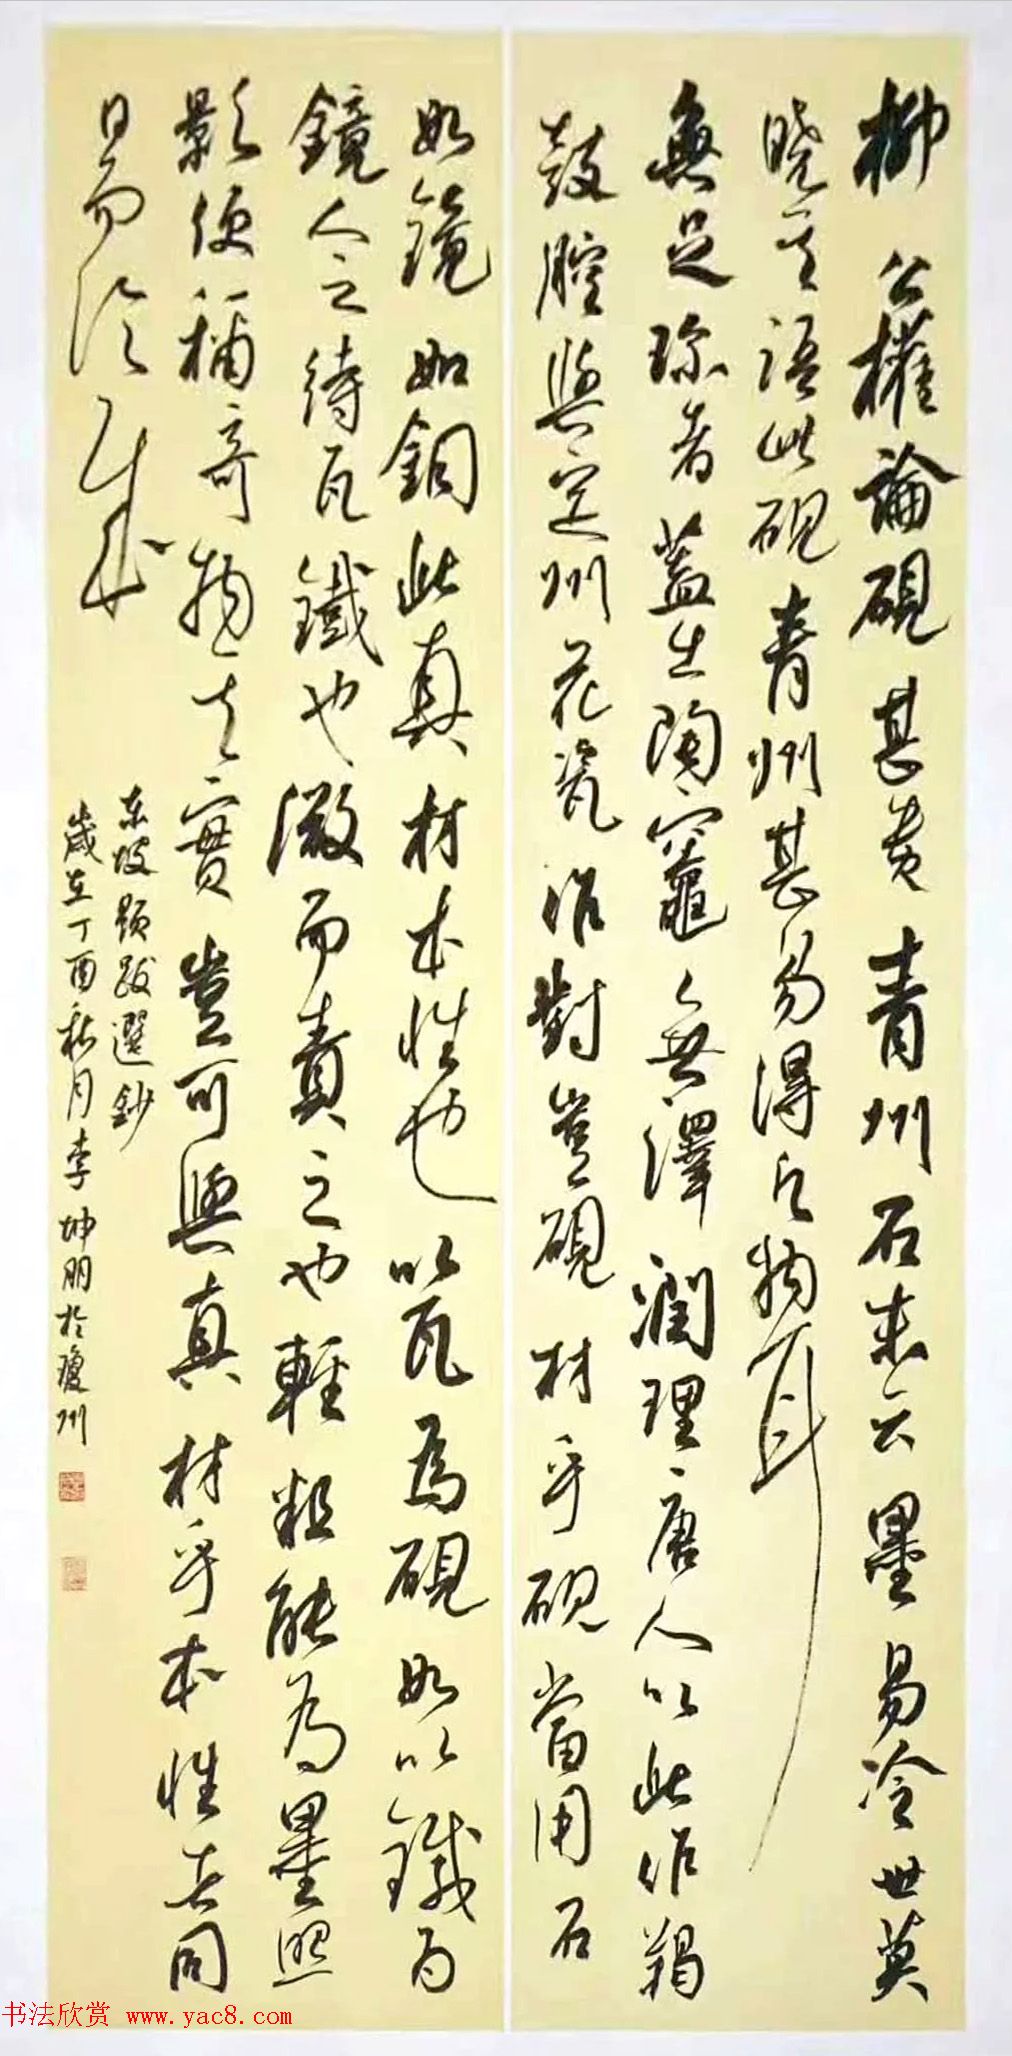 柳公權論硯甚貴青州石末云墨易冷世莫
曉其語此硯青州甚易得凡物耳
無足珍者蓋出陶竈無澤潤理唐人以此作羯
鼓腔與定州花瓷作對豈硯材乎硯當用石
如鏡如銅此真材本性也以瓦為硯如以鐵為
鏡人之待瓦鐵也微而責之也輕粗能為墨照
影便稱奇物其實豈可與真材乎本性者同
日而論哉
东坡題跋選鈔
歲在丁酉秋月李坤朋於瓊州
书法欣赏 www.yac8.com